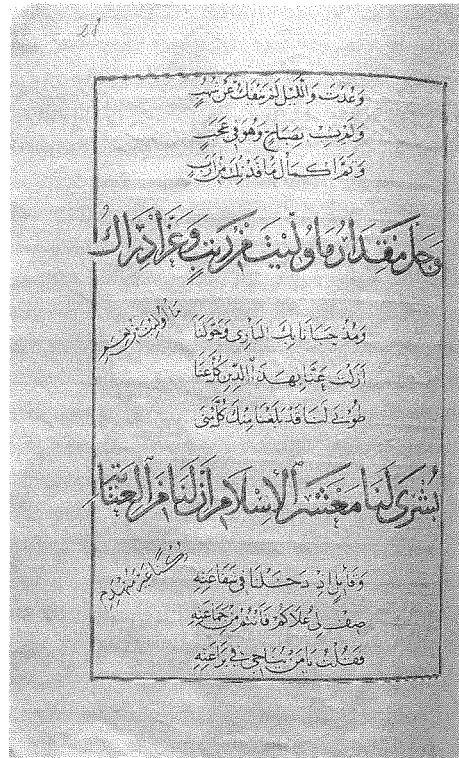 وَعُدْتَ وَاللَّيْلُ لَمْ يَنْفَكَّ عَنْ شُهُبٍ
وَلَمْ يُشَبْ بِصَبَاحٍ وَهُوَ فِي عَجَبٍ
وَتَمَّ إِكْمَالُ مَا قَدْ نِلْتَ مِنْ أَرَبٍ
وَجَلَّ مِقْدَارُ مَا وُلِّيتَ مِنْ رُتَبٍ وَعَزَّ إِدْرَاكُ
مَا أُولِيتَ مِنْ نِعَمِ
وَمُذْ حَبَانَا بِكَ الْبَارِي وَخَوَّلَنَا
أَزَلْتَ عَنَّا بِهَذَا الدِّينِ كُلَّ عَنَا
طُوبَى لَنَا قَدْ بَلَغْنَا مِنْكَ كُلَّ مُنَى
بُشْرَى لَنَا مَعْشَرَ الْإِسْلَامِ إِنَّ لَنَا مِنَ الْعِنَايَةِ
رُكْنًا غَيْرَ مُنْهَدِمِ
وَقَايِلٍ إِذْ دَخَلْنَا فِي شَفَاعَتِهِ
صِفْ لِي عُلَاكُمْ فَأَنْتُمْ مِنْ جَمَاعَتِهِ
فَقُلْتُ يَا مَنْ يُنَاجِي فِي بَرَاعَتِهِ